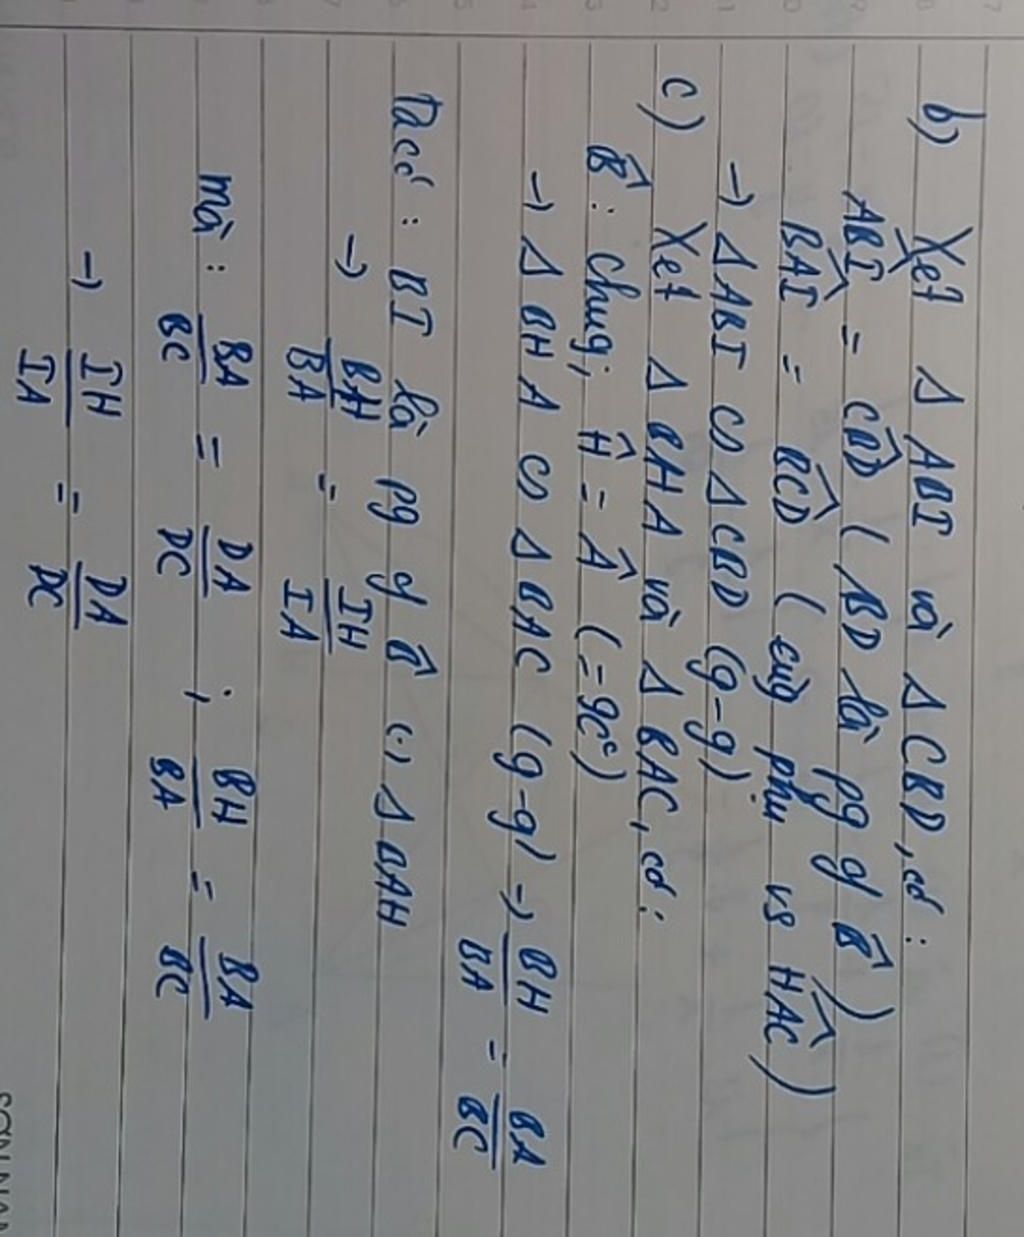 b) Xét Δ ABI và Δ CBD, có:
ABI^ = CBD^ ( BD là pg of B^ )
BAI^ = BCD^ ( cùg phụ vs HAC^ )
→ Δ ABI ∽ Δ CBD (g-g)
c) Xét Δ BHA và Δ BAC, có:
B^ : chug; H^ = A^ (=90°)
→ Δ BHA ∽ Δ BAC (g-g) → BH/BA = BA/BC
Ta có : BI là pg of B^ (.) Δ BAH
→ BH/BA = IH/IA
mà : BA/BC = DA/DC ; BH/BA = BA/BC
→ IH/IA = DA/DC